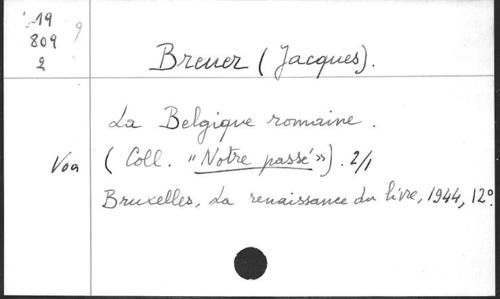 19 9
809
2
Breuer (Jacques).
La Belgique romaine.
Voa (Coll. "Notre passé"). 2/1
Bruxelles, La renaissance du livre, 1944, 12°.